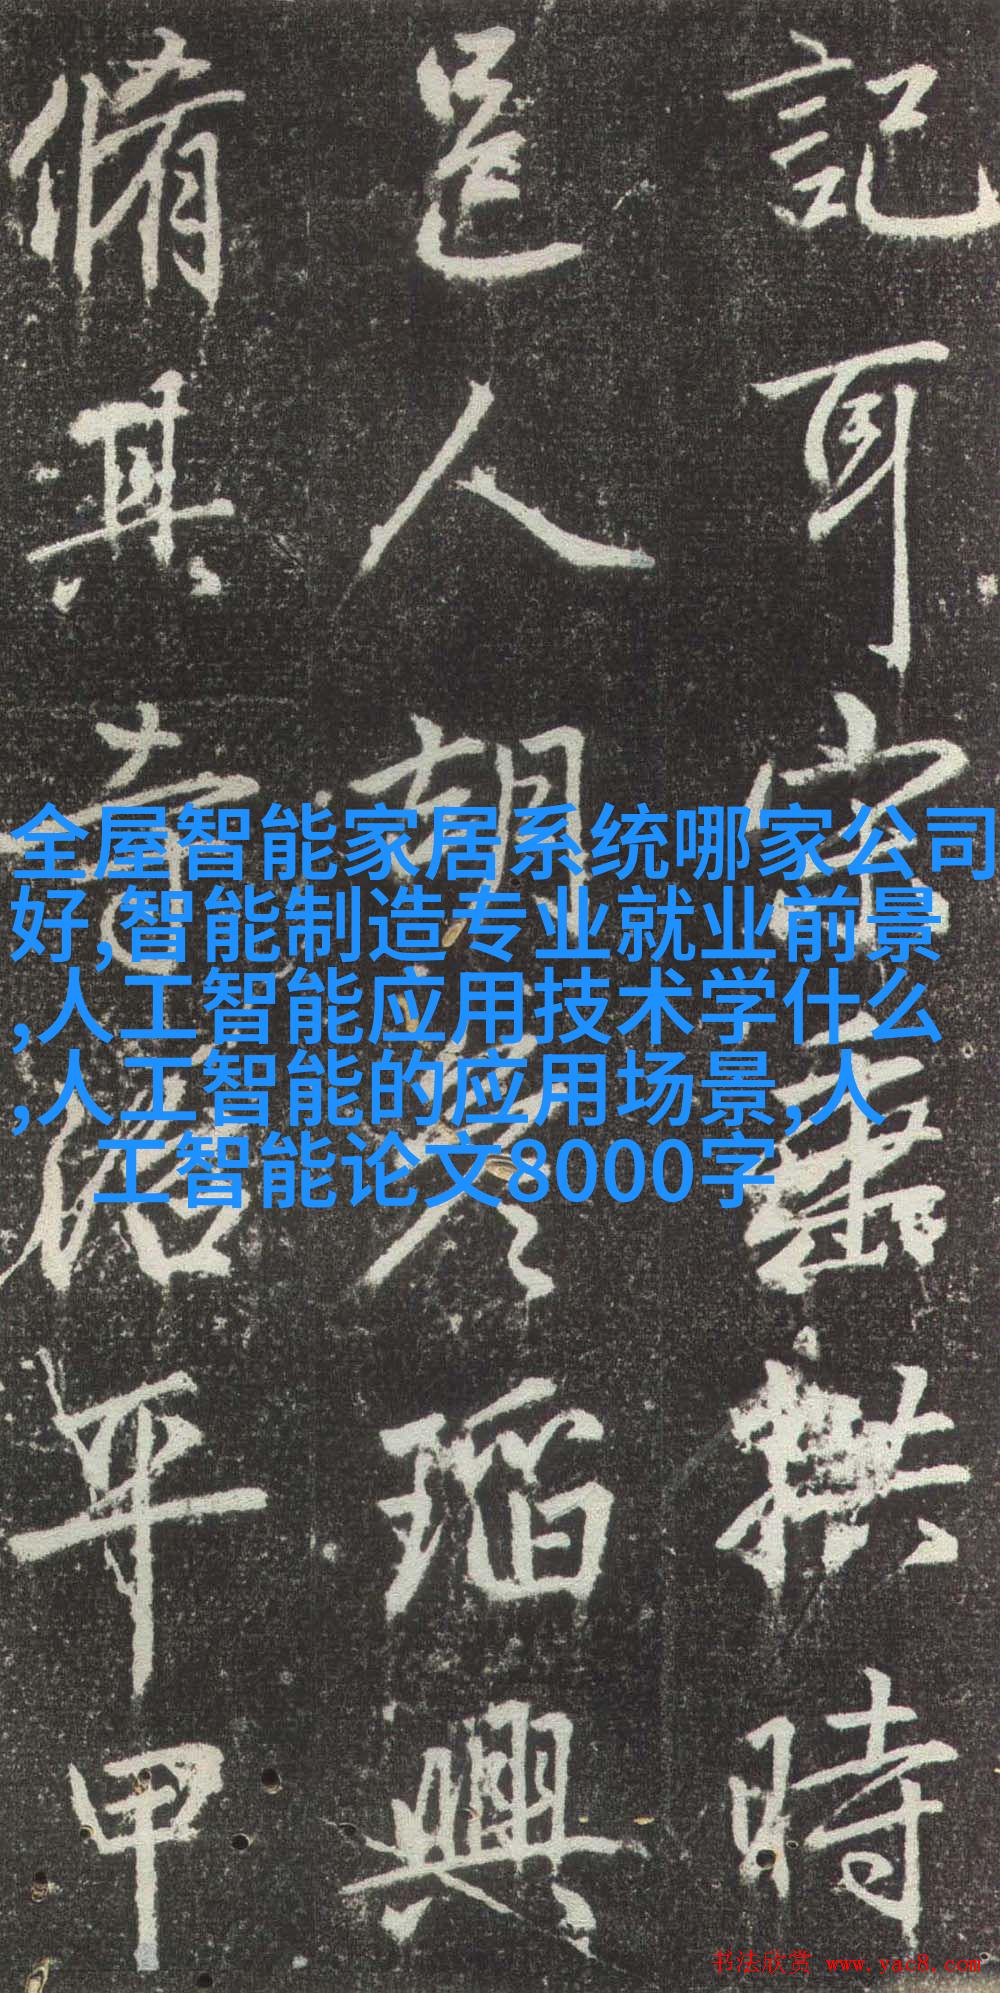 記耳宗垂拱時
邑人胡彦瑫興
脩其寺治平甲
全屋智能家居系统哪家公司
好,智能制造专业就业前景
,人工智能应用技术学什么
,人工智能的应用场景,人
工智能论文8000字
书法欣赏 www.yac8.com